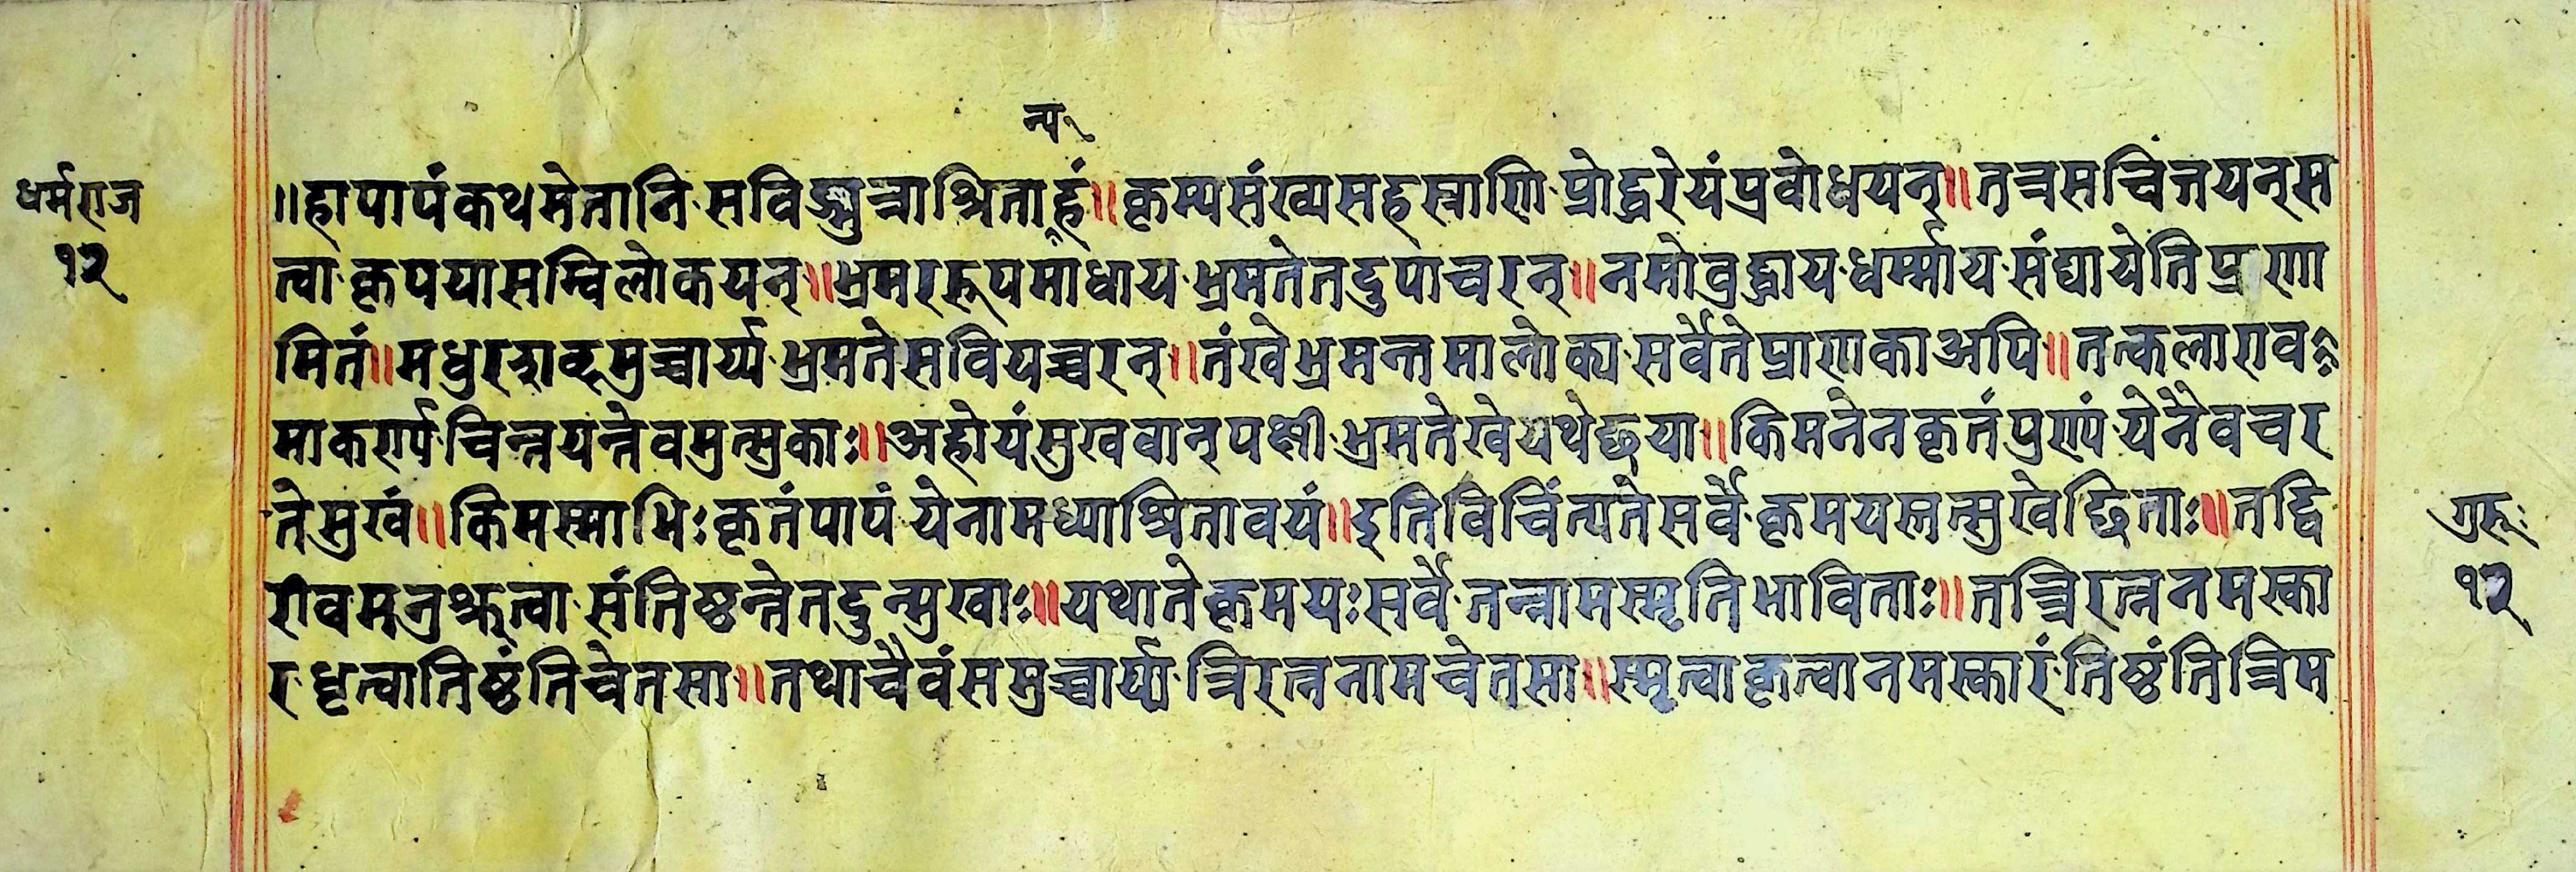 न्य १
धर्मराज
१२
॥हापापंकथमेतानि सविण्मुत्राश्रिताहं॥कृम्यसंख्यसहस्त्राणि प्रोद्धरेयंप्रवोधयन्॥तत्रसचिंतयन्स
त्वा कृपयासम्विलोकयन्॥भ्रमररूपमाधाय भ्रमतेतदुपाचरन्॥नमोवुद्धाय धर्म्माय संघायेतिप्रणा
मितं॥मधुरशब्दमुच्चार्य्य भ्रमतेसवियच्चरन्॥तंखेभ्रमन्तमालोक्य सर्वेतेप्राणकाअपि॥तत्कलाराव
माकर्ण्य चिन्तयन्तेवमुत्सुकाः॥अहोयंसुखवान्पक्षी भ्रमतेखेयथेछया॥किमनेनकृतंपुण्यं येनैवचर
तेसुखं॥किमस्माभिः कृतंपापं येनामध्याश्रितावयं॥इतिविचिंत्यते सर्वे कृमयस्तत्सुखेछिताः॥तद्वि
रावमनुश्रुत्वा संतिष्ठन्तेतदुन्मुखाः॥यथातेकृमयः सर्वे तन्नामस्मृतिभाविताः॥तत्त्रिरत्ननमस्का
र धृत्वातिष्ठंतिचेतसा॥तथाचैवंसमुच्चार्य्य त्रिरत्ननामचेतसा॥स्मृत्वाकृत्वानमस्कारं तिष्ठंतित्रिम
गुरुः
१२